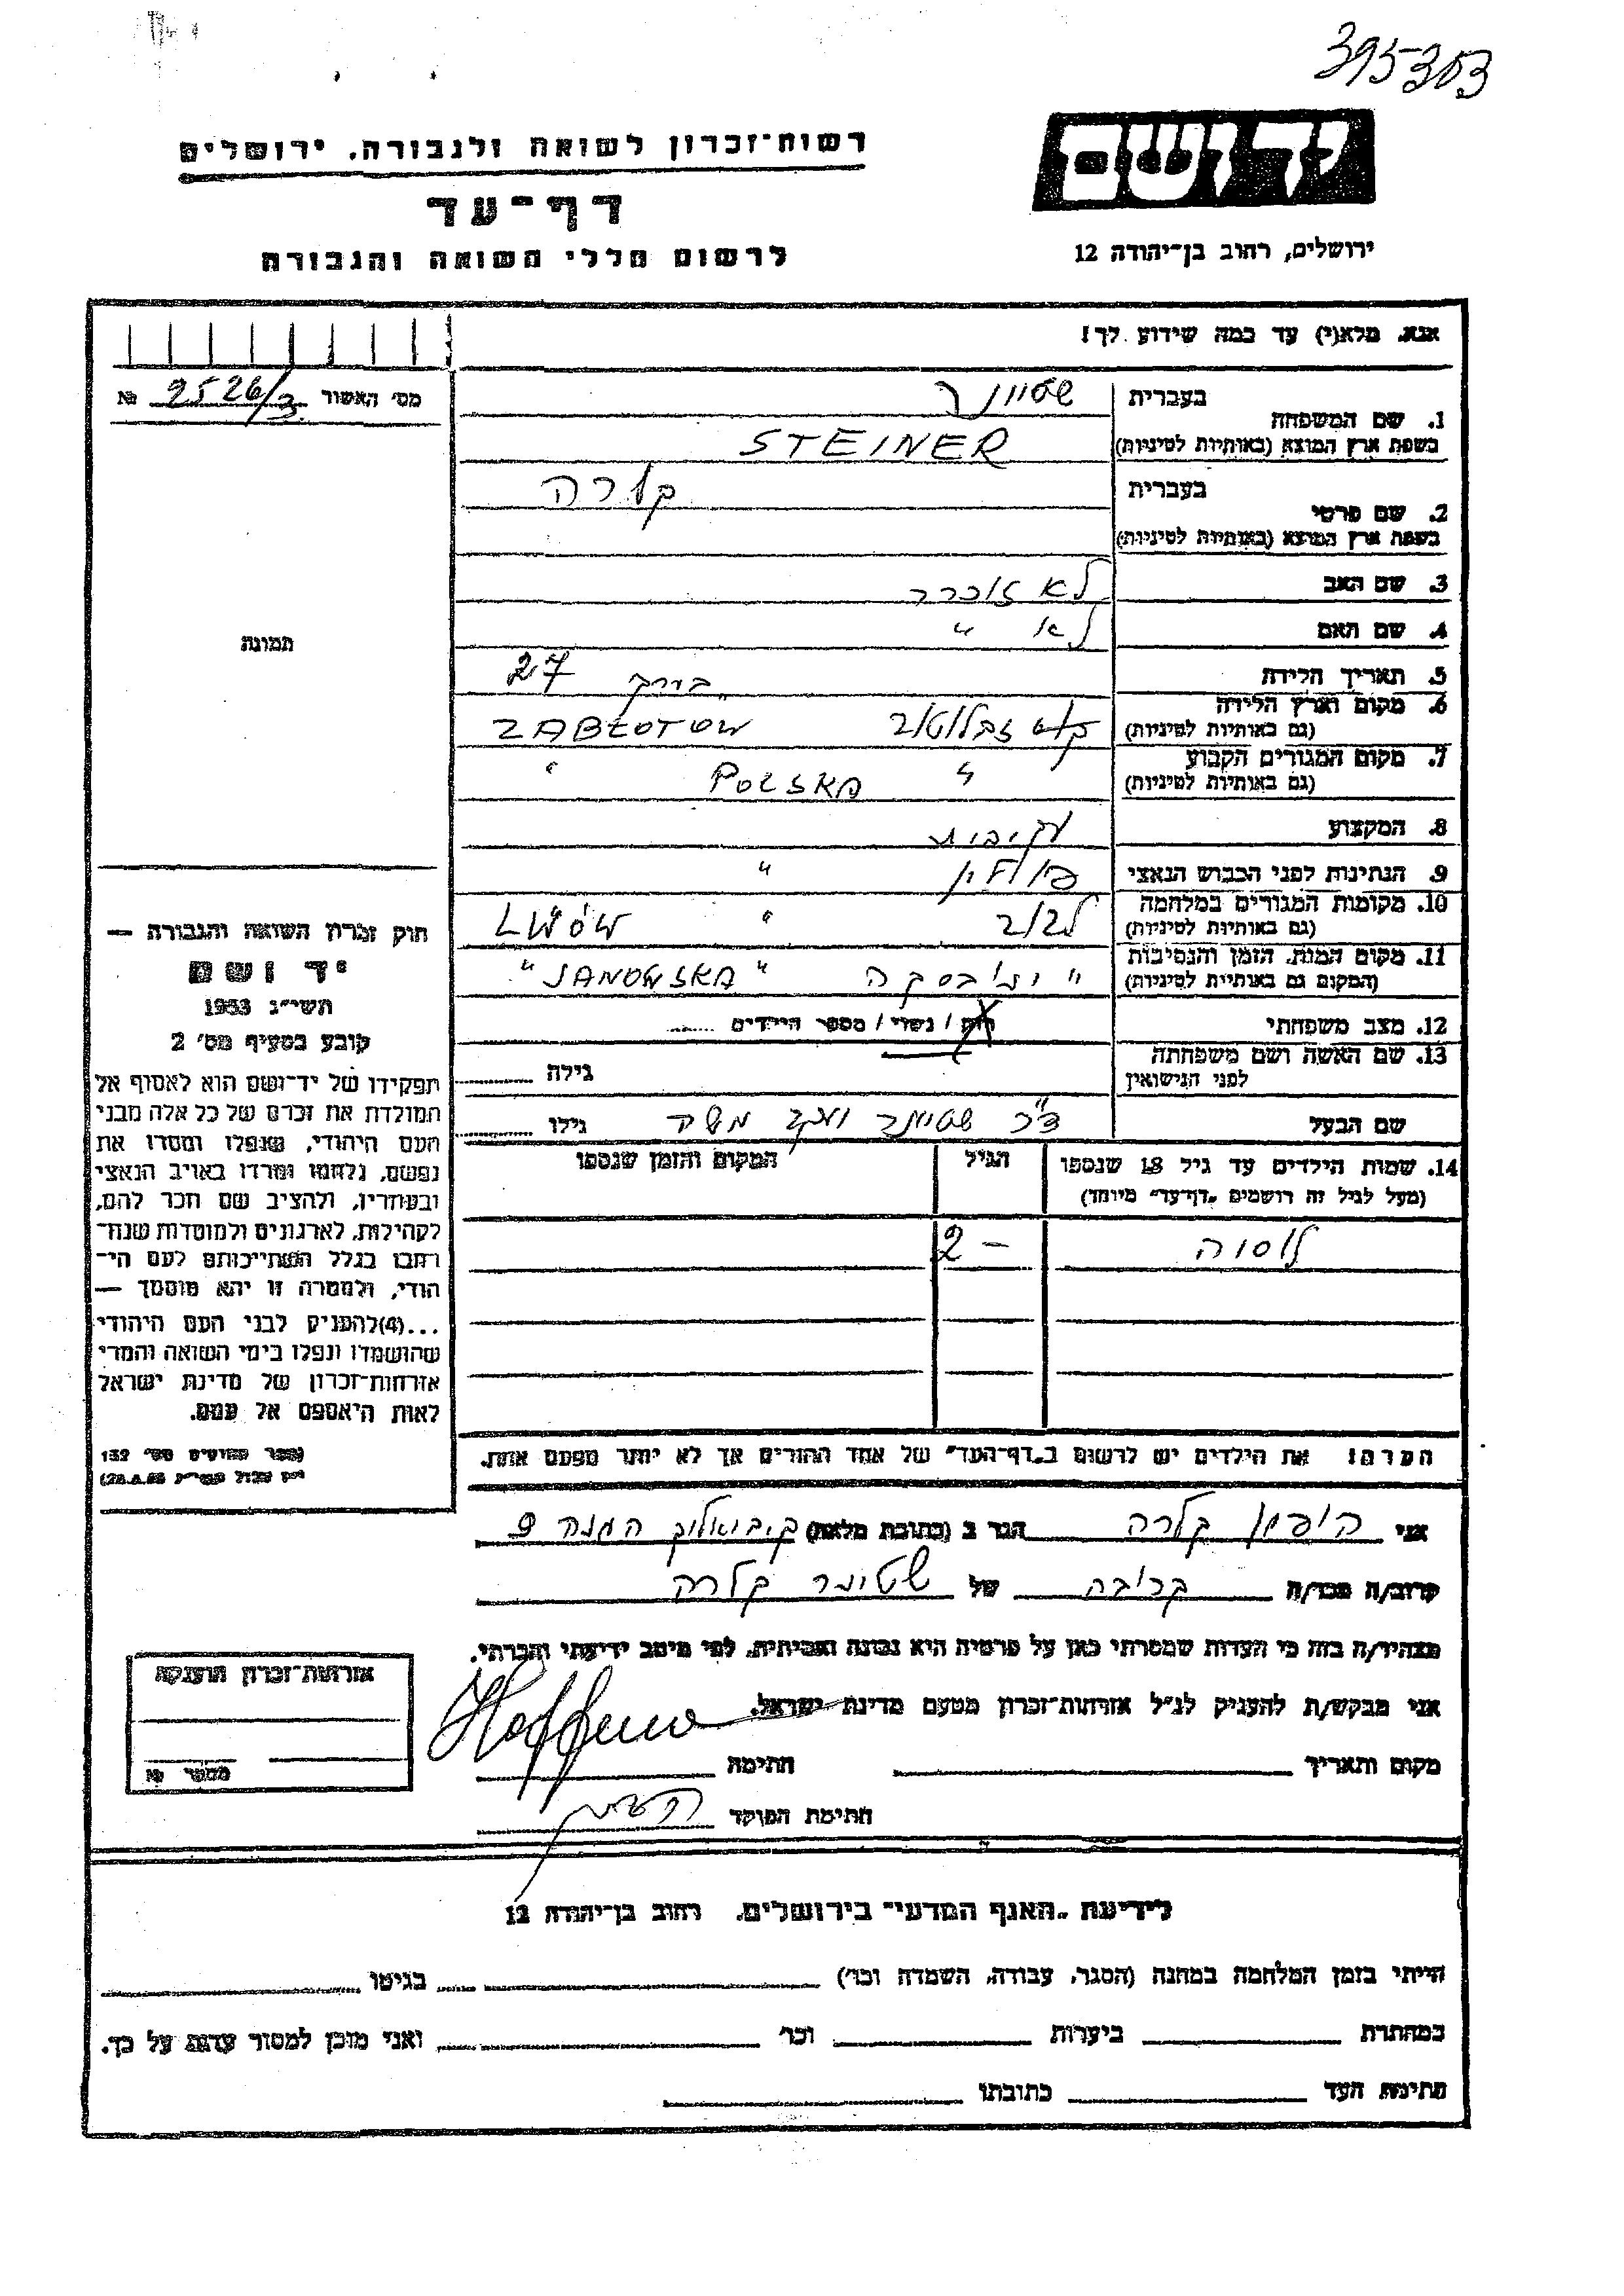 395303
יד ושם
רשות־זכרון לשואה ולגבורה, ירושלים
דף־עד
ירושלים, רחוב בן־יהודה 12
לרשום חללי השואה והגבורה
אנא, מלא(י) עד כמה שידוע לך!
מס׳ האשור 9526/3 №
תמונה
1. שם המשפחה בעברית שטיינר
בשפת ארץ המוצא (באותיות לטיניות) STEINER
2. שם פרטי בעברית קלרה
בשפת ארץ המוצא (באותיות לטיניות)
3. שם האב לא זוכרת
4. שם האם לא "
5. תאריך הלידה בערך 27
6. מקום וארץ הלידה
(גם באותיות לטיניות) זבלוטוב ZABŁOTÓW
7. מקום המגורים הקבוע
(גם באותיות לטיניות) " POLSKA "
8. המקצוע
9. הנתינות לפני הכבוש הנאצי פולין "
10. מקומות המגורים במלחמה
(גם באותיות לטיניות) לבוב " LWÓW
11. מקום המות, הזמן והנסיבות
(המקום גם באותיות לטיניות) "ינובסקה" "JANOWSKA"
12. מצב משפחתי רוק / נשוי / מספר הילדים
13. שם האשה ושם משפחתה
לפני הנישואין גילה
שם הבעל ד״ר שטיינר יעקב משה גילו
14. שמות הילדים עד גיל 18 שנספו הגיל המקום והזמן שנספו
(מעל לגיל זה רושמים "דף־עד" מיוחד)
לוסיה 2 –
הערה: את הילדים יש לרשום ב"דף־העד" של אחד ההורים אך לא יותר מפעם אחת.
חוק זכרון השואה והגבורה —
יד ושם
תשי״ג 1953
קובע בסעיף מס׳ 2
תפקידו של יד־ושם הוא לאסוף אל
המולדת את זכרם של כל אלה מבני
העם היהודי, שנפלו ומסרו את
נפשם, נלחמו ומרדו באויב הנאצי
ובעוזריו, ולהציב שם וזכר להם,
לקהילות, לארגונים ולמוסדות שנח־
רבו בגלל השתייכותם לעם הי־
הודי, ולמטרה זו יהא מוסמך —
...(4) להעניק לבני העם היהודי
שהושמדו ונפלו בימי השואה והמרי
אזרחות־זכרון של מדינת ישראל
לאות היאספם אל עמם.
(ספר החוקים מס׳ 132
אני הופמן קלרה הגר ב (כתובת מלאה) ק. ביאליק ההגנה 9
קרוב/ה מכר/ה קרובה של שטיינר קלרה
מצהיר/ה בזה כי העדות שמסרתי כאן על פרטיה היא נכונה ואמיתית, לפי מיטב ידיעתי והכרתי.
אני מבקש/ת להעניק לנ״ל אזרחות־זכרון מטעם מדינת ישראל.
מקום ותאריך חתימה
חתימת הפוקד
אזרחות־זכרון הוענקה
מספר №
לידיעת "האגף המדעי" בירושלים, רחוב בן־יהודה 12
הייתי בזמן המלחמה במחנה (הסגר, עבודה, השמדה וכו׳) בגיטו
במחתרת ביערות וכו׳ ואני מוכן למסור עדות על כך.
חתימת העד כתובתו